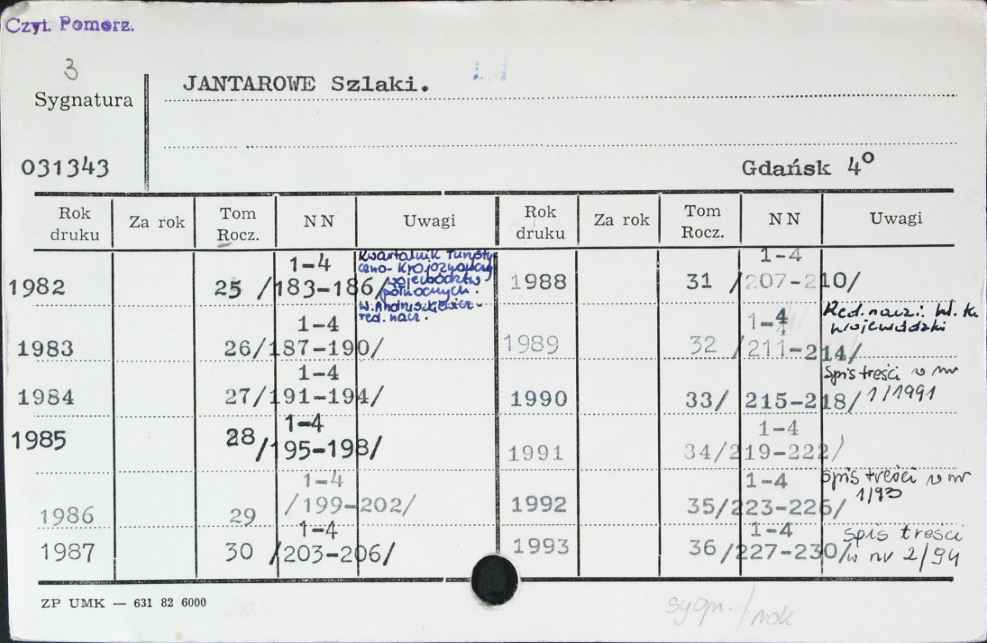 Czyt. Pomorz.
3
Sygnatura
JANTAROWE Szlaki.
031343
Gdańsk 4°
Rok druku Za rok Tom Rocz. NN Uwagi Rok druku Za rok Tom Rocz. NN Uwagi
1982 25 1-4 /183-186/ Kwartalnik Turysty-
czno-Krajoznawczy
województw
północnych.
W. Andruszkiewicz-
red. nacz.
1983 26 1-4 /187-190/
1984 27 1-4 /191-194/
1985 28 1-4 /195-198/
1986 29 1-4 /199-202/
1987 30 1-4 /203-206/
1988 31 1-4 /207-210/
1989 32 1-4 /211-214/ Red. nacz.: W. K.
Wojewódzki
1990 33 1-4 /215-218/ Spis treści w nr
1/1991
1991 34 1-4 /219-222/
1992 35 1-4 /223-226/ Spis treści w nr
1/93
1993 36 1-4 /227-230/ spis treści
w nr 2/94
ZP UMK — 631 82 6000
sygn./rok